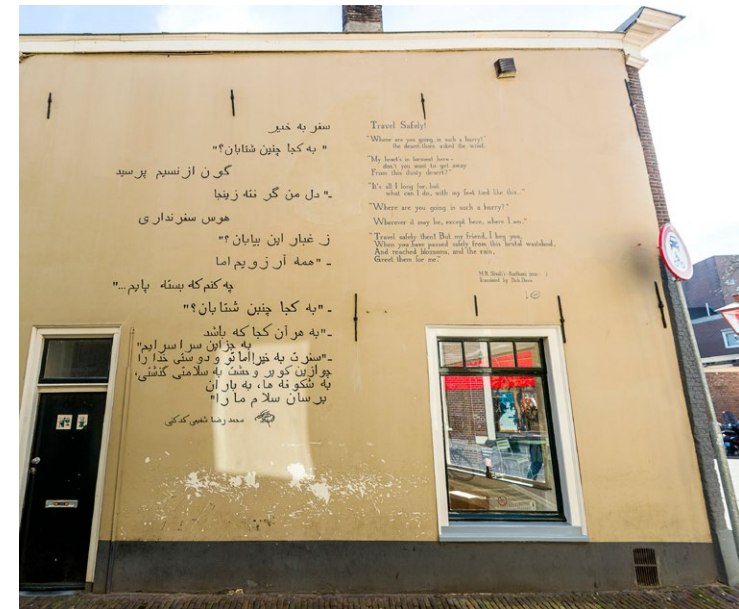 سفر به خیر
" به کجا چنین شتابان؟"
گون از نسیم پرسید
ـ" دل من گرفته زینجا
هوس سفر نداری
ز غبار این بیابان؟"
ـ "همه آرزویم اما
چه کنم که بسته پایم..."
ـ "به کجا چنین شتابان؟"
ـ"به هر آن کجا که باشد
به جز این سرا سرایم"
ـ"سفرت به خیر!اما تو و دوستی خدا را
چو ازین کویر وحشت به سلامتی گذشتی،
به شکوفه ها، به باران
برسان سلام ما را"
محمد رضا شفیعی کدکنی
Travel Safely!
"Where are you going in such a hurry?"
the desert-thorn asked the wind.
"My heart's in torment here -
don't you want to get away
From this dusty desert?"
"It's all I long for, but
what can I do, with my feet tied like this.."
"Where are you going in such a hurry?"
"Wherever it may be, except here, where I am."
"Travel safely then! But my friend, I beg you,
When you have passed safely from this brutal wasteland,
And reached blossoms, and the rain,
Greet them for me."
M.R. Shafi'i-Kadkani
Translated by Dick Davis